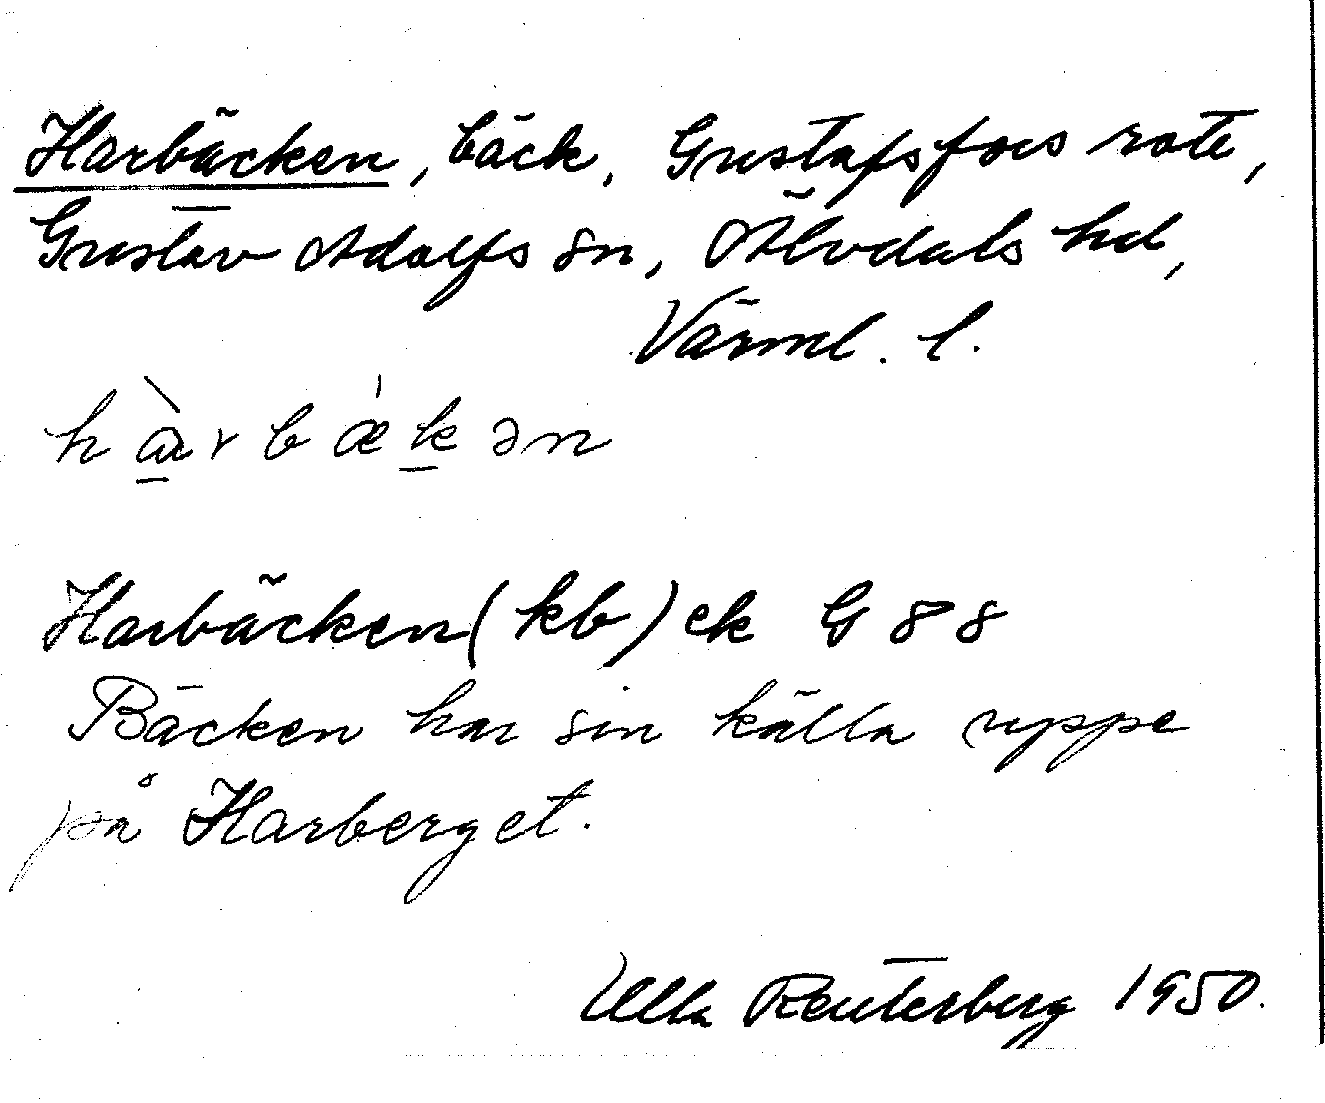 Harbäcken, bäck, Gustafsfors rote,
Gustav Adolfs sn, Älvdals hd,
Värml. l.
hàrbǽkən
Harbäcken (kb) ek G 88
Bäcken har sin källa uppe
på Harberget.
Ulla Reuterberg 1950.